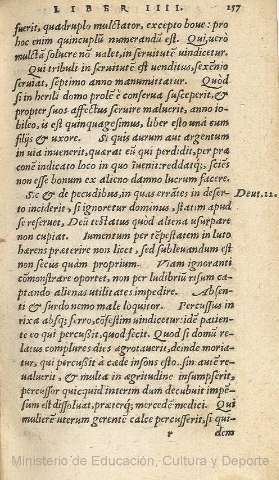 LIBER IIII. 157
fuerit, quadruplo mulctator, excepto boue: pro
hoc enim quincuplũ numerandũ est. Qui uerò
mulctã soluere nõ ualet, in seruitutẽ uindicetur.
Qui tribuli in seruitutẽ est uenditus, sexẽnio
seruiat, septimo anno manumittatur. Quòd
si in herili domo prole è conserua susceperit, &
propter suos affectus seruire maluerit, anno io-
bileo, is est quinquagesimus, liber esto unà cum
filijs & uxore. Si quis aurum aut argentum
in uia inuenerit, quærat eũ qui perdidit, per præ
conẽ indicato loco in quo iuenit: reddatq;, sciẽs
non esse bonum ex alieno damno lucrum facere.
Sic & de pecudibus, in quas errãtes in deser-
to inciderit, si ignoretur dominus, statim apud
se reseruet, Deũ testatus quòd aliena usurpare
non cupiat. Iumentum per tẽpestatem in luto
hærens præterire non licet, sed subleuandum est
non secus quàm proprium. Viam ignoranti
cõmonstrare oportet, non per ludibriũ risum ca-
ptando alienas utilitates impedire. Absen-
ti & surdo nemo male loquitor. Percussus in
rixa absq; ferro, cõfestim uindicetur: idẽ patien-
te eo qui percußit, quod fecit. Quòd si domũ re-
latus complures dies ægrotauerit, deinde moria-
tur, qui percußit à cæde insons esto. sin autẽ re-
ualuerit, & multa in ægritudine insumpserit,
percussor quicquid interim dum decubuit impẽ-
sum est dissoluat, præterq; mercedẽ medici. Qui
mulierẽ uterum gerentẽ calce percusserit, si qui-
r dem
Deut.22.
Ministerio de Educación, Cultura y Deporte